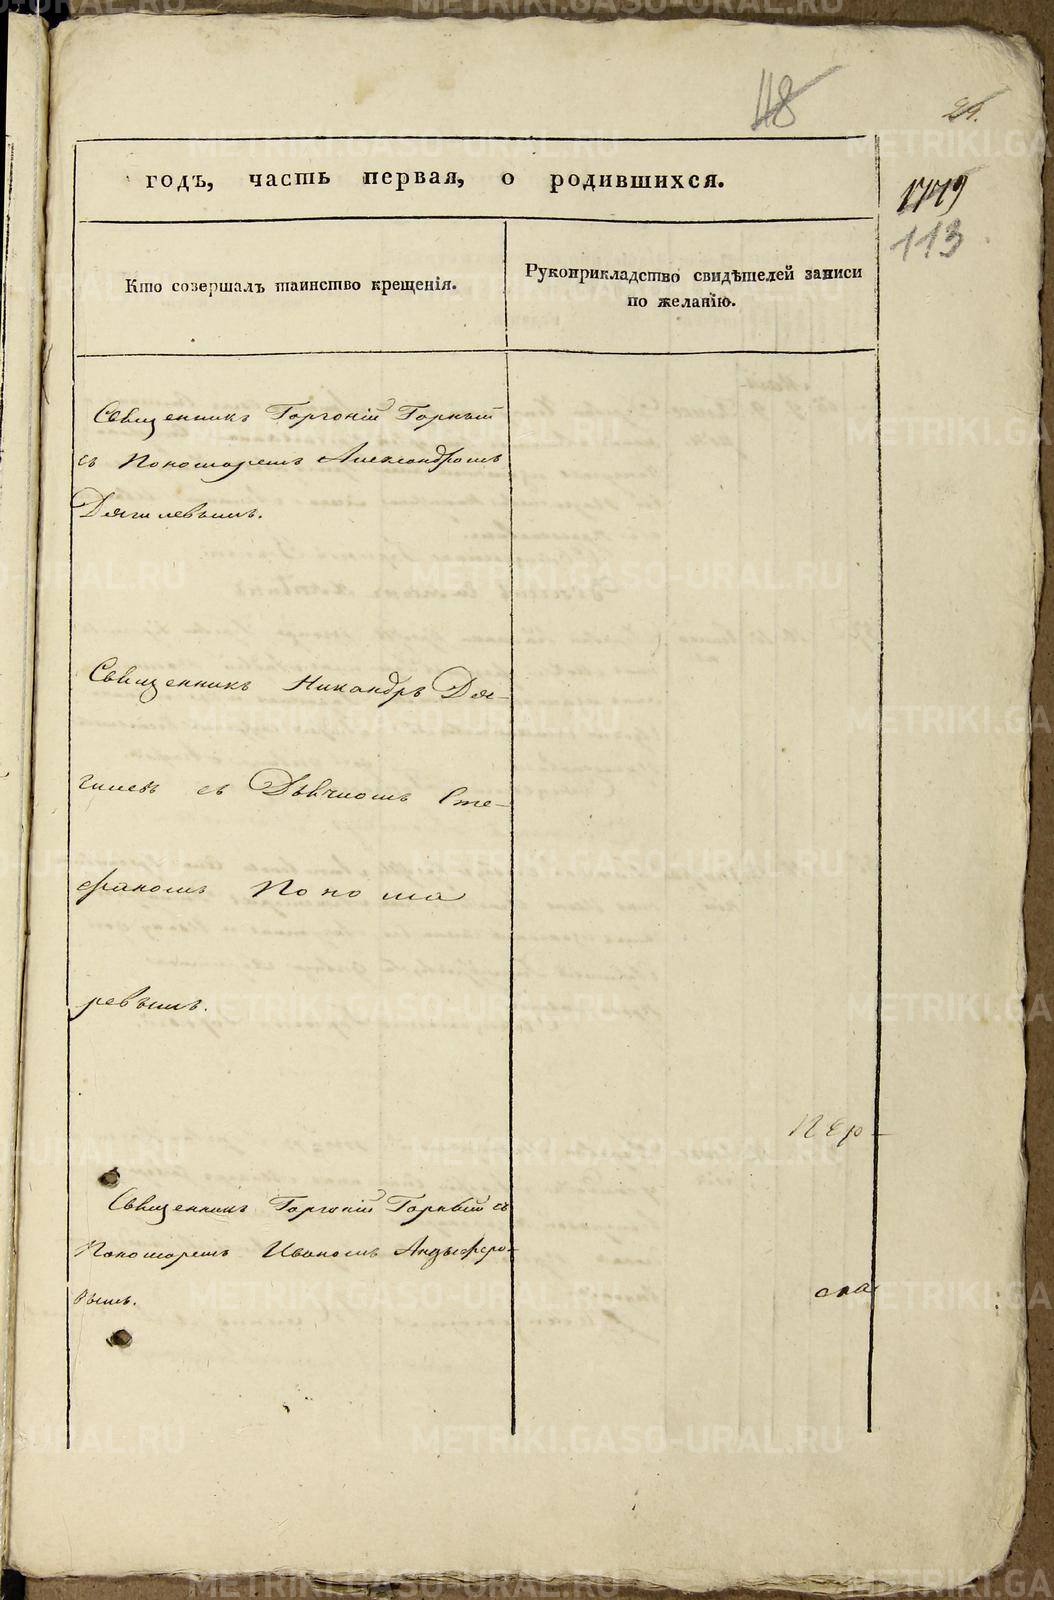 118
годъ, часть первая, о родившихся.
113
Кто совершалъ таинство крещенія.
Рукоприкладство свидѣтелей записи
по желанію.
Священникъ Горгоній Горный
съ Пономаремъ Александромъ
Дягилевымъ.
Священникъ Никандръ Дя-
гилевъ съ Дьячкомъ Сте-
фаномъ Понома
ревымъ.
Пер-
Священникъ Горгоній Горный съ
Пономаремъ Иваномъ
вымъ.
METRIKI.GASO-URAL.RU